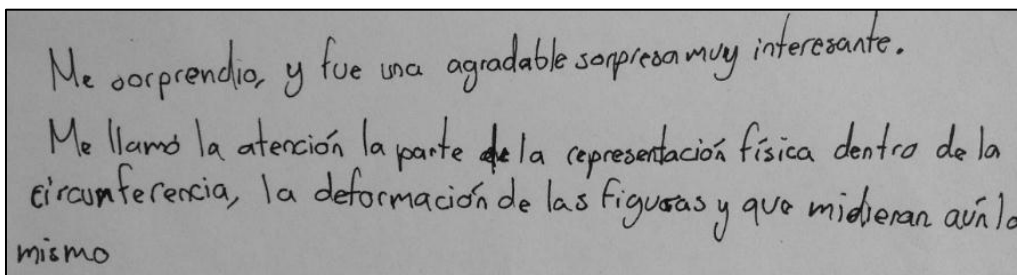 Me sorprendio, y fue una agradable sorpresa muy interesante.
Me llamó la atención la parte de la representación física dentro de la
circunferencia, la deformación de las figuras y que midieran aún lo
mismo